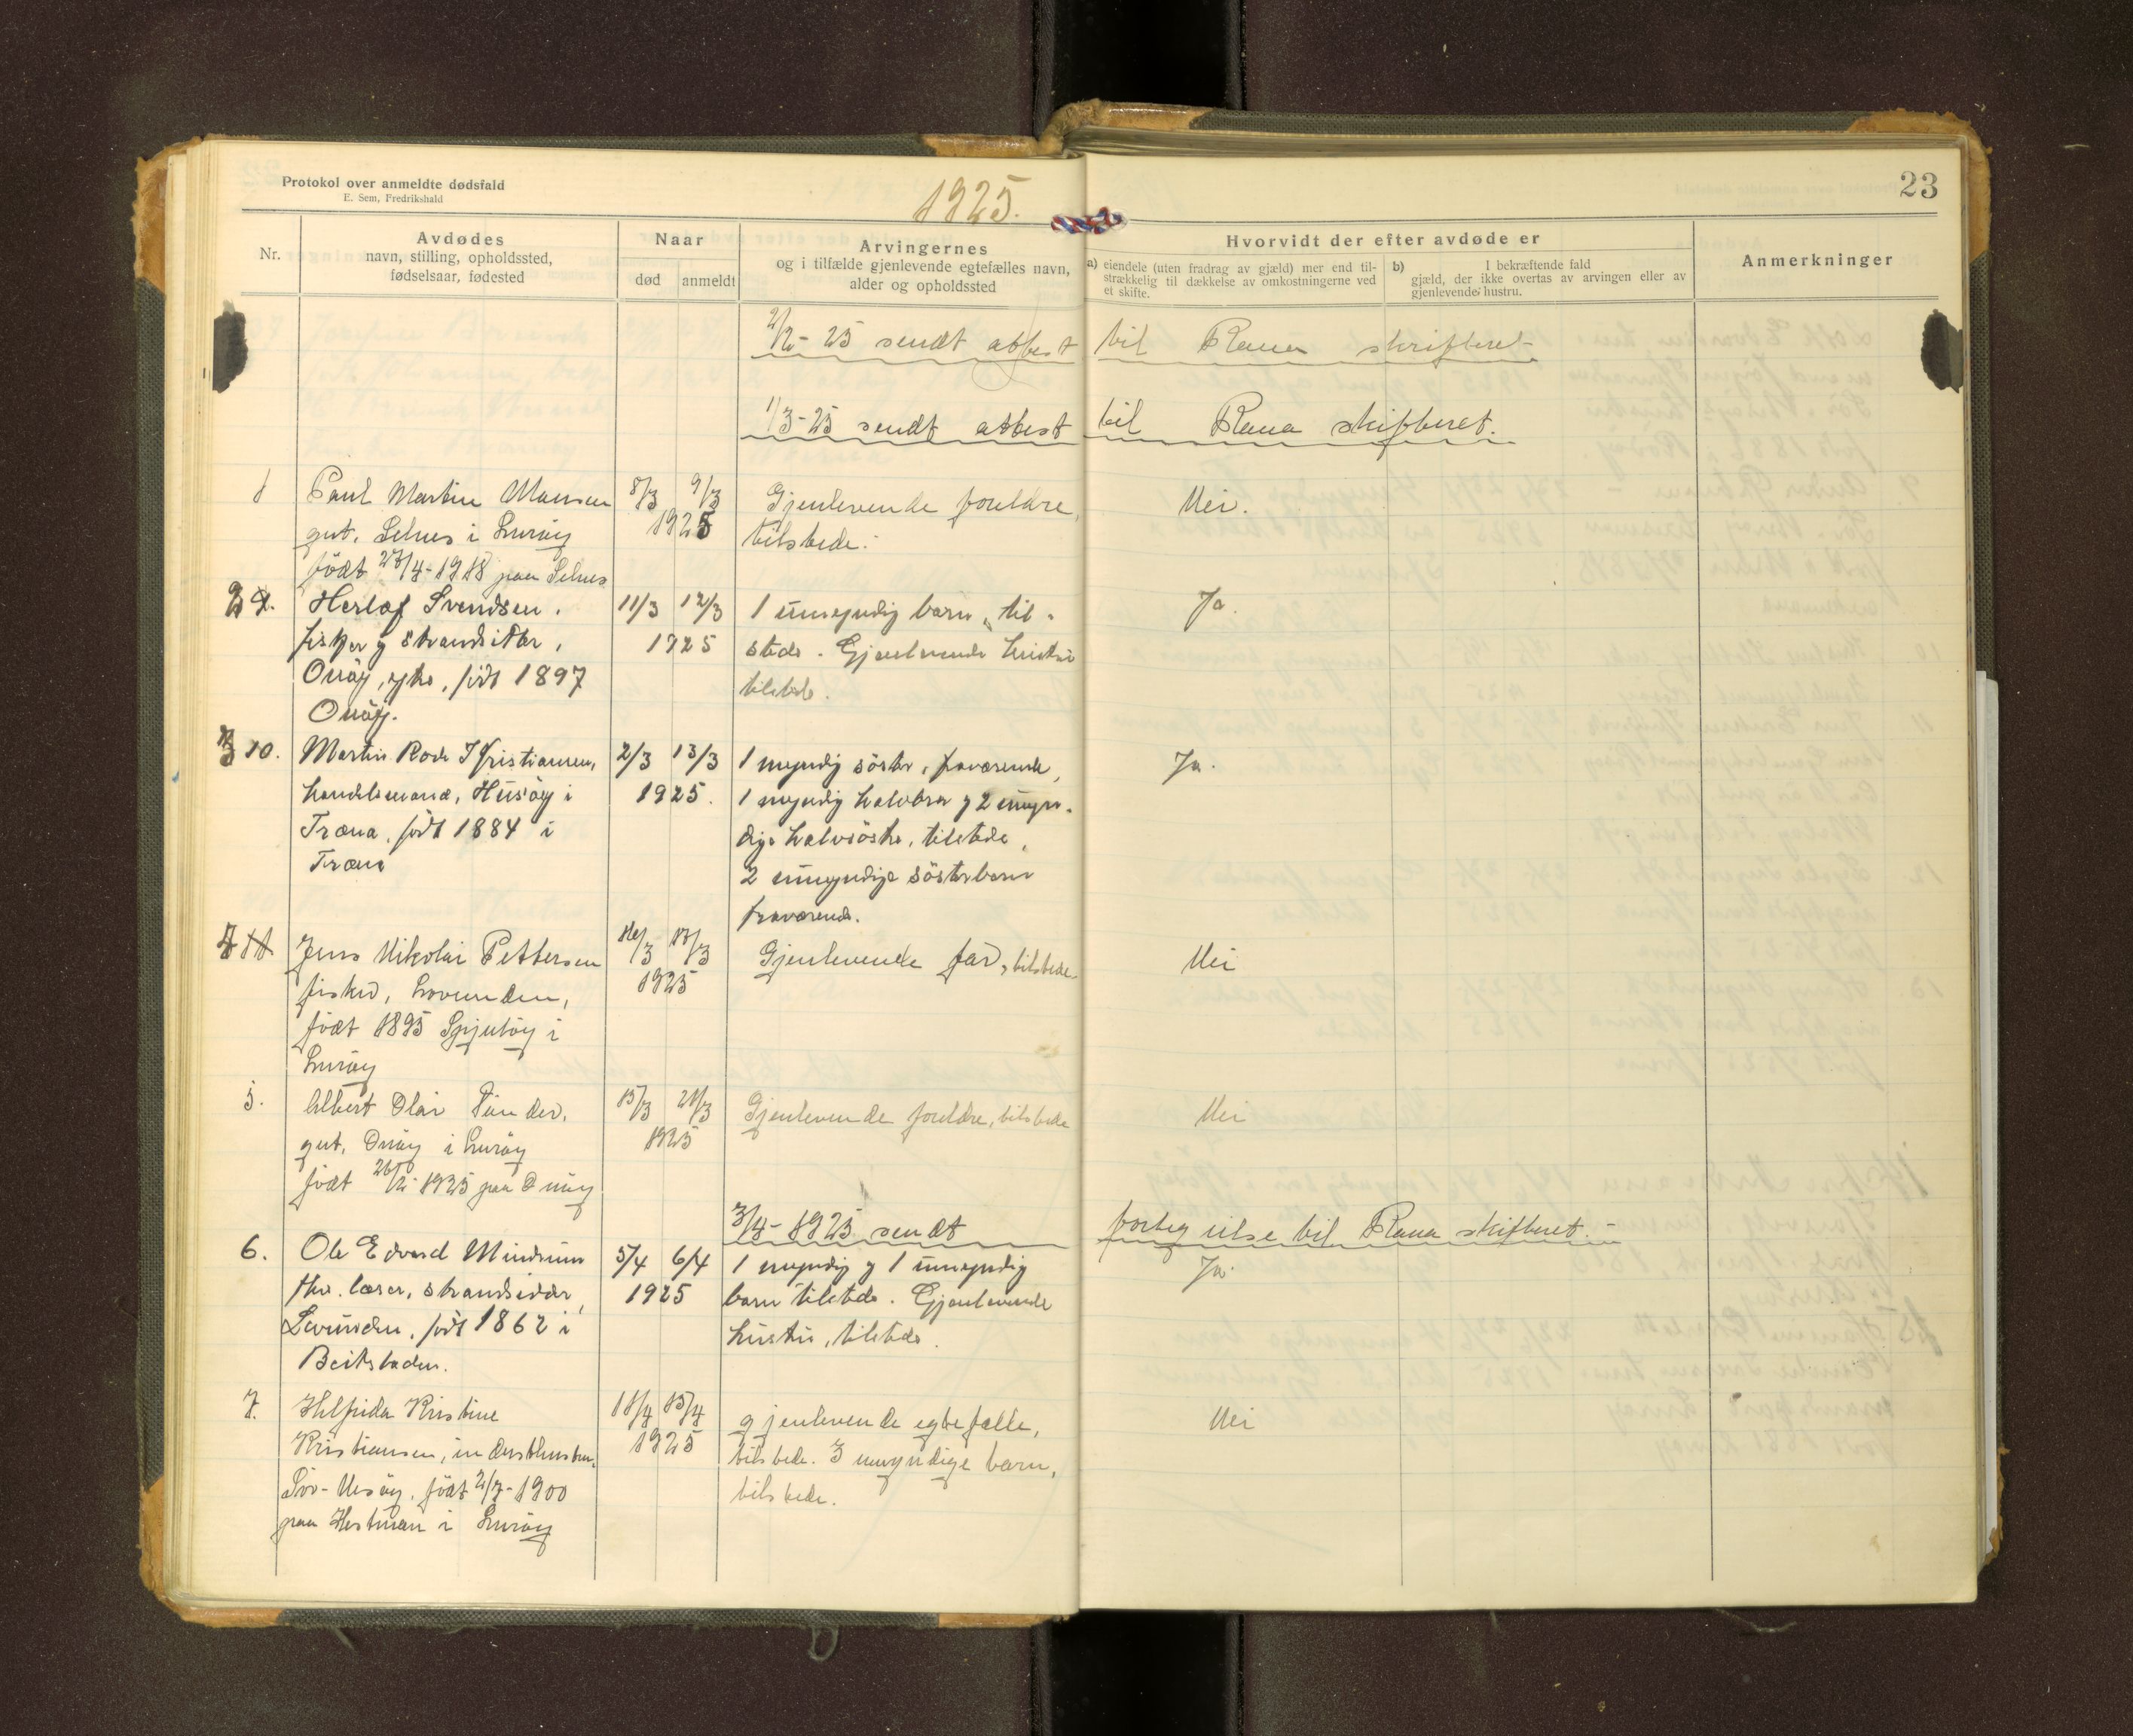 Protokol over anmeldte dødsfald
E. Sem, Fredrikshald
1925.
23
Nr.
Avdødes
navn, stilling, opholdssted,
fødselsaar, fødested
Naar
død anmeldt
Arvingernes
og i tilfælde gjenlevende egtefælles navn,
alder og opholdssted
Hvorvidt der efter avdøde er
a) eiendele (uten fradrag av gjæld) mer end til-
strækkelig til dækkelse av omkostningerne ved
et skifte.
b) I bekræftende fald
gjæld, der ikke overtas av arvingen eller av
gjenlevende hustru.
Anmerkninger
2/2-25 sendt attest til Rana skifteret
1/3-25 sendt attest til Rana skifteret.
1 Paul Martin 8/3 9/3 Gjenlevende foreldre, Nei.
gut, Selnes i Lurøy 1925 tilstede.
født 27/4-1918 paa Selnes
2 Herlof Svendsen, 11/3 12/3 1 umyndig barn, til- Ja.
fisker og strandsitter, 1925 stede. Gjenlevende hustru
Onøy, gift, født 1897 tilstede.
Onøy.
3 10. Martin Rode Kristiansen, 2/3 13/3 1 myndig søster, fraværende, Ja.
handelsmand, Husøy i 1925. 1 myndig halvbror og 2 umyn-
Træna, født 1884 i dige halvsøstre, tilstede,
Træna 2 umyndige søsterbarn
fraværende.
4 11 Jens Nikolai Pettersen Gjenlevende far, tilstede Nei
fisker, Lovunden, 1925
født 1895 i
Lurøy
5. Albert Olai 15/3 21/3 Gjenlevende foreldre, tilstede Nei
gut, Onøy i Lurøy 1925
født 26/2-1925 paa Onøy
3/4-1925 sendt fortegnelse til Rana skifteret.
6. Ole Edvard 5/4 6/4 1 myndig og 1 umyndig Ja.
fhv. lærer, strandsidder, 1925 barn tilstede. Gjenlevende
Lovunden, født 1862 i hustru, tilstede.
Beitstaden.
7. Helfrida Kristine 11/4 15/4 gjenlevende egtefælle, Nei
Kristiansen, 1925 tilstede. 3 umyndige barn,
Sør-Nesøy, født 2/7-1900 tilstede.
paa Hestman i Lurøy